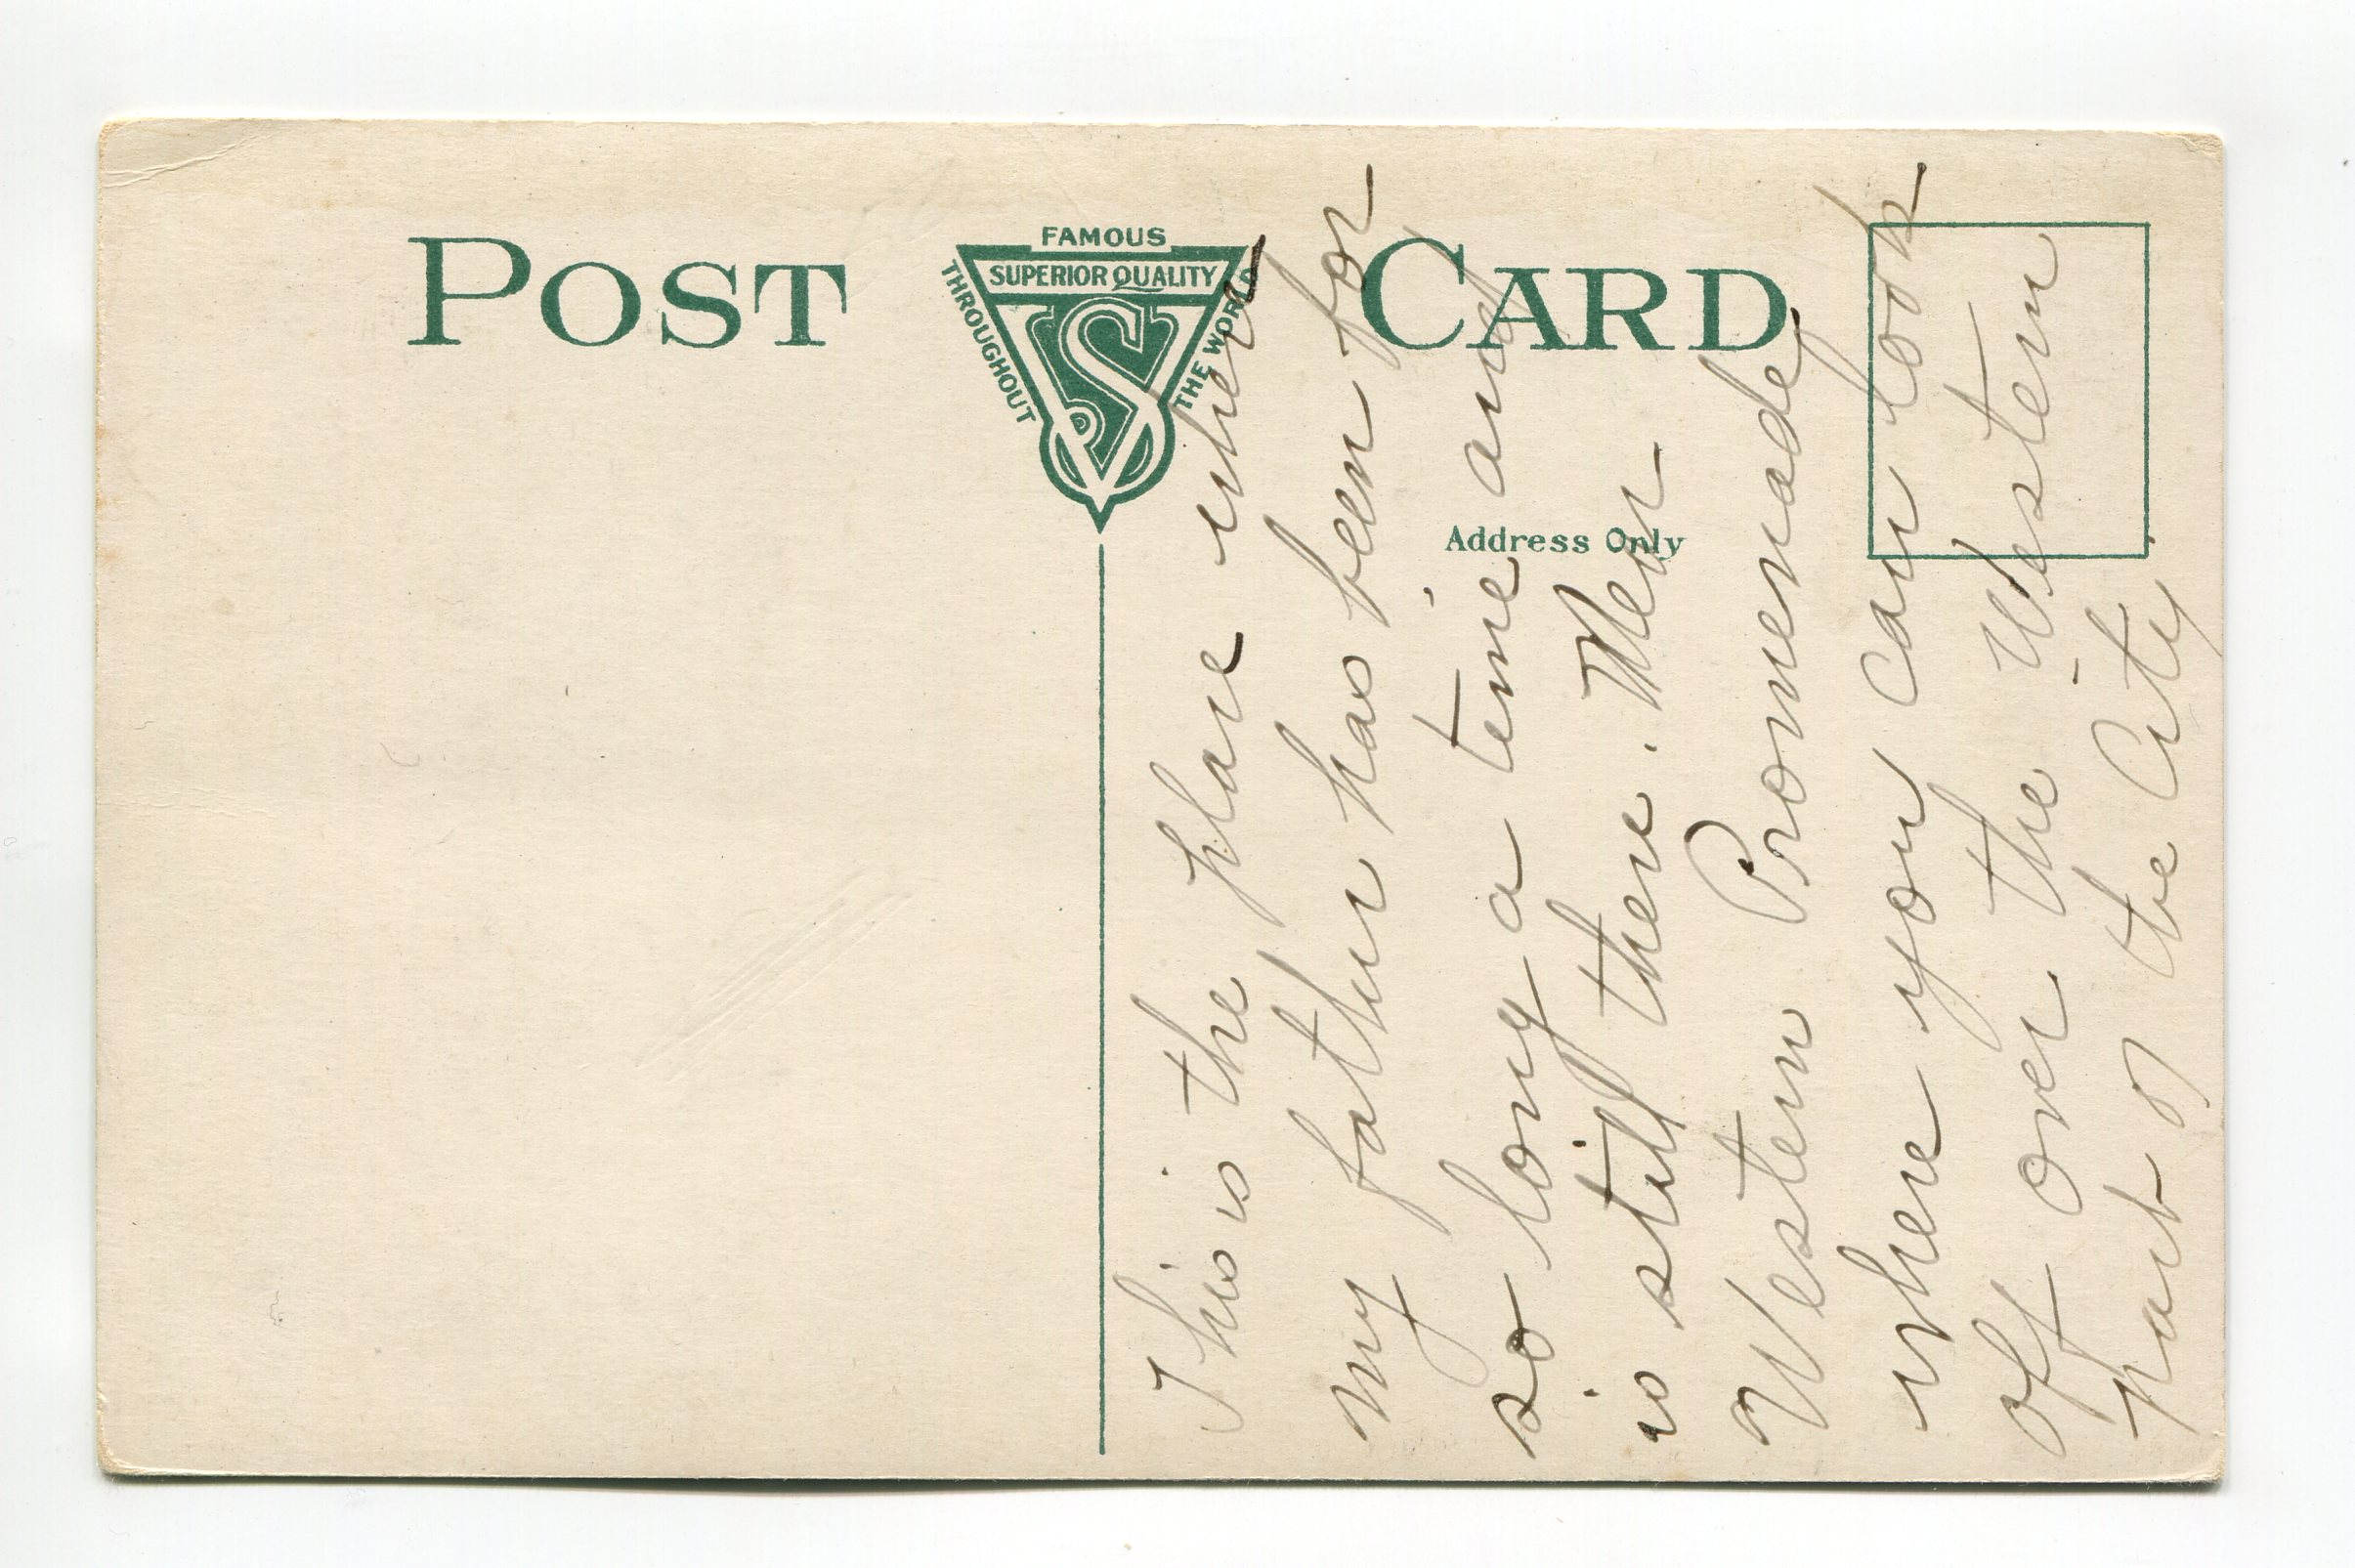 POST CARD
FAMOUS
SUPERIOR QUALITY
THROUGHOUT
THE WORLD
VS
Address Only
This is the place where
my father has been for
so long a time and
is still there. Men
Western Promenade
where you can look
off over the Western
part of the City.